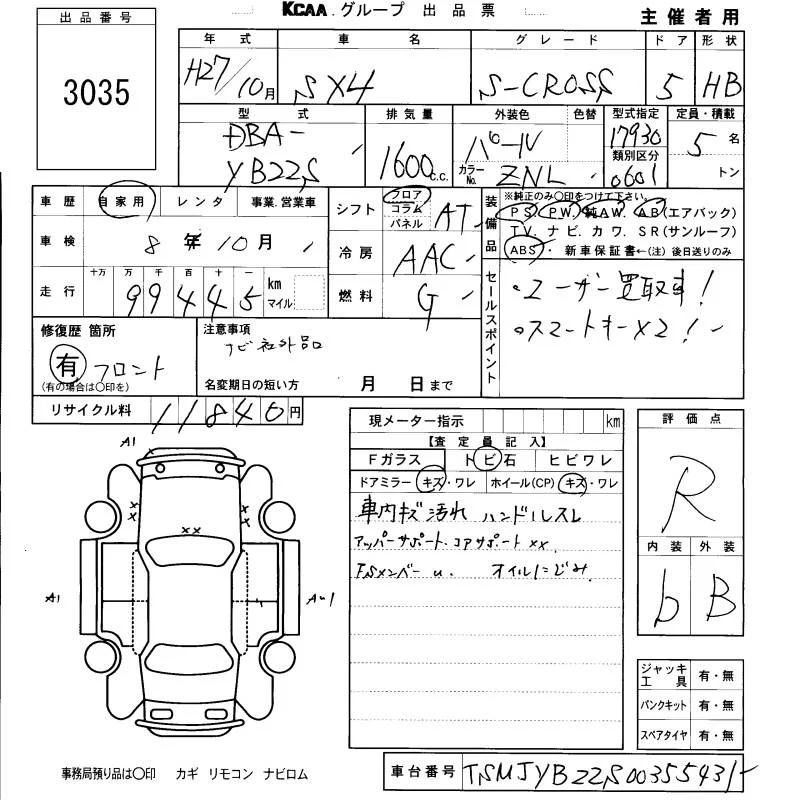 KCAA.グループ 出品票
主催者用
出品番号
3035
年式 車名 グレード ドア 形状
H27/10月 SX4 S-CROSS 5 HB
型式 排気量 外装色 色替 型式指定 定員・積載
DBA-YB22S 1600c.c. パール 17930 5名
カラーNo. ZNL 類別区分 0601 トン
車歴 自家用 レンタ 事業.営業車
車検 8年10月
走行 十万 万 千 百 十 一 km マイル
99445
シフト フロア コラム パネル AT
冷房 AAC
燃料 G
装備品 ※純正のみ○印をつけて下さい。
PS. PW. 純AW. AB(エアバック)
TV. ナビ. カワ. SR(サンルーフ)
ABS・新車保証書←(注)後日送りのみ
セールスポイント
・ユーザー買取車!
・スマートキー×2!
修復歴 箇所
有 フロント
(有の場合は○印を)
注意事項
ナビ社外品
名変期日の短い方 月 日まで
リサイクル料 11840円
現メーター指示 km
【査定員記入】
Fガラス トビ石 ヒビワレ
ドアミラー キズ・ワレ ホイール(CP) キズ・ワレ
車内キズ汚れ ハンドルスレ
アッパーサポート.コアサポートxx
FSメンバーu. オイルにじみ
評価点
R
内装 外装
b B
A1
xx
xx
xx
A1
Au1
ジャッキ工具 有・無
パンクキット 有・無
スペアタイヤ 有・無
事務局預り品は○印 カギ リモコン ナビロム
車台番号 TSMJYB22S00355431